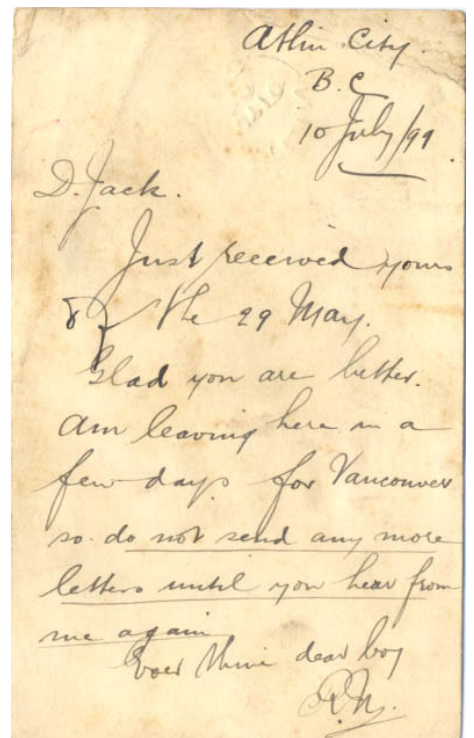 Atlin City.
B.C
10 July/99
D. Jack.
Just received yours
of the 29 May.
Glad you are better.
Am leaving here in a
few days for Vancouver
so do not send any more
letters until you hear from
me again
Ever thine dear boy